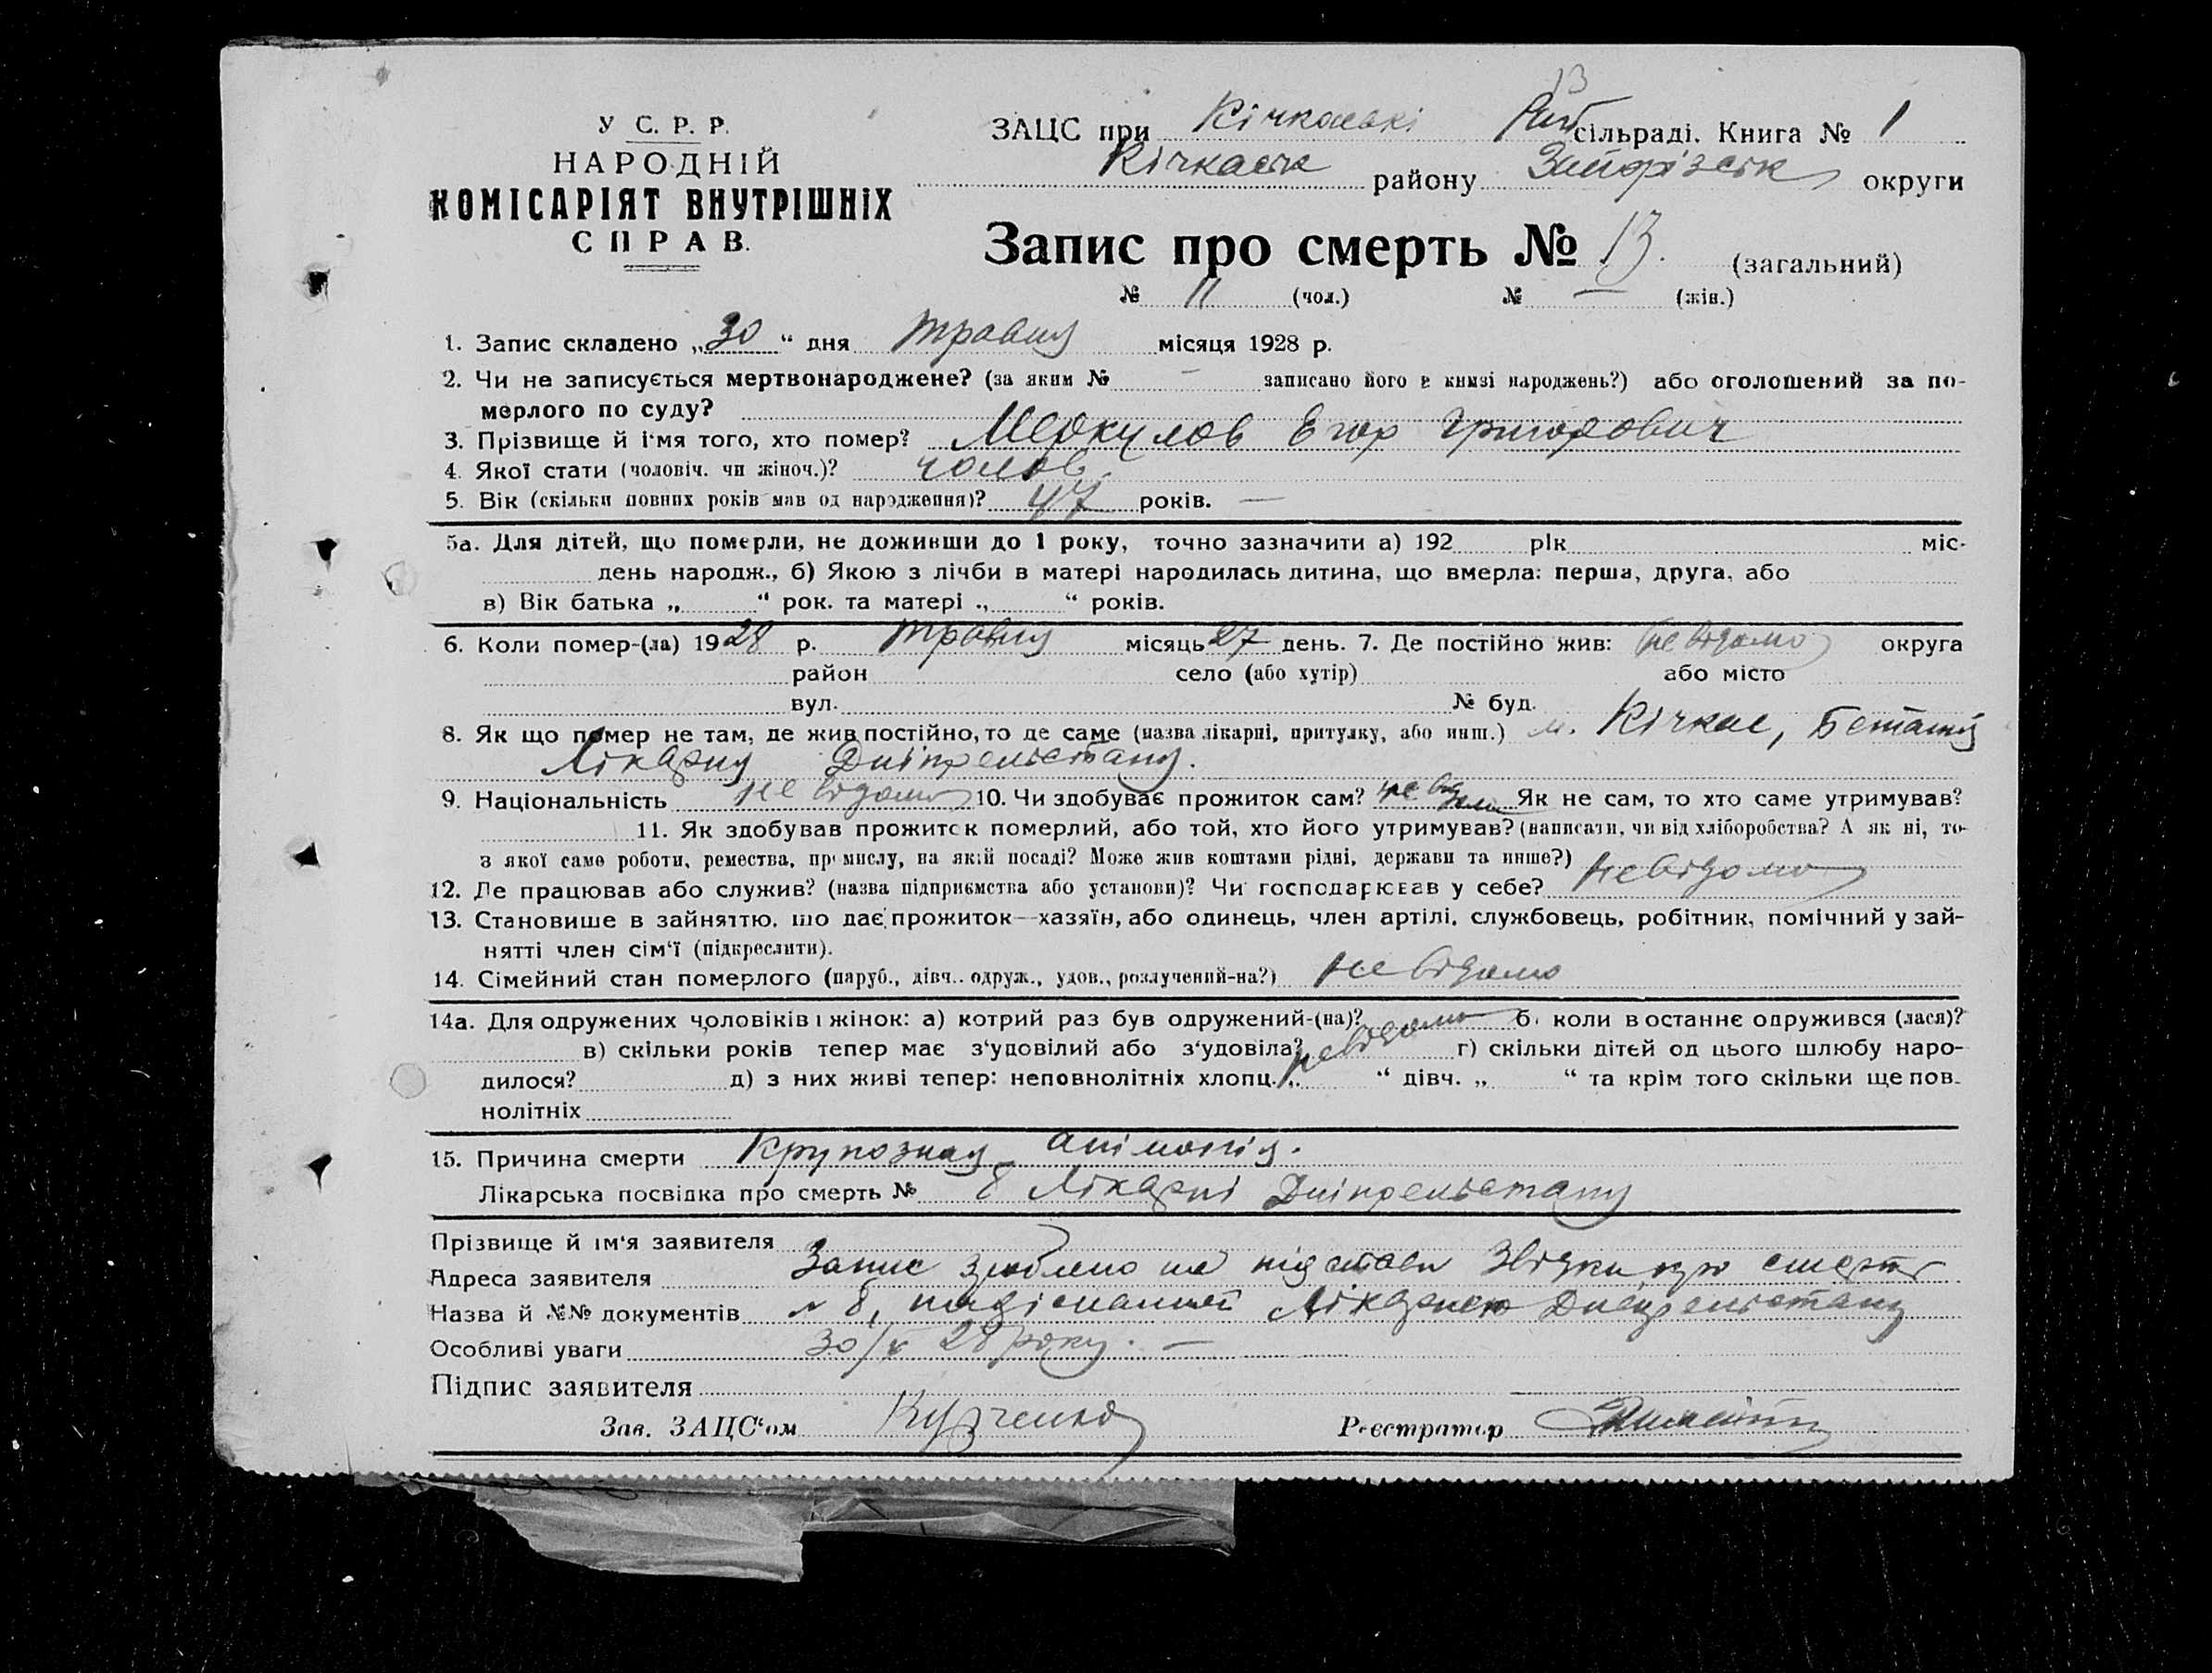 13
У С. Р. Р.
НАРОДНІЙ
КОМІСАРІЯТ ВНУТРІШНІХ
СПРАВ.
ЗАЦС при Кічкаські Рай сільраді. Книга № 1
Кічкаськ району Запоріжськ округи
Запис про смерть № 13. (загальний)
№ 11 (чол.) № — (жін.)
1. Запис складено „30“ дня травня місяця 1928 р.
2. Чи не записується мертвонароджене? (за яким № – записано його в книзі народжень?) або оголошений за по-
мерлого по суду?
3. Прізвище й ім'я того, хто помер? Меркулов Егор Григорович
4. Якої стати (чоловіч. чи жіноч.)? чолов.
5. Вік (скільки повних років мав од народження)? 47 років. —
5а. Для дітей, що померли, не доживши до 1 року, точно зазначити а) 192 рік міс-
день народж., б) Якою з лічби в матері народилась дитина, що вмерла: перша, друга, або
в) Вік батька „ “ рок. та матері „ “ років.
6. Коли помер-(ла) 1928 р. травня місяць 27 день. 7. Де постійно жив: невідомо округа
район село (або хутір) або місто
вул. № буд.
8. Як що помер не там, де жив постійно, то де саме (назва лікарні, притулку, або инш.) м. Кічкас,
Лікарня Дніпрельстану.
9. Національність невідомо 10. Чи здобував прожиток сам? невідомо Як не сам, то хто саме утримував?
11. Як здобував прожиток померлий, або той, хто його утримував? (написати, чи від хліборобства? А як ні, то-
з якої саме роботи, ремества, промислу, на якій посаді? Може жив коштами рідні, держави та инше?)
12. Де працював або служив? (назва підприємства або установи)? Чи господарював у себе? невідомо
13. Становище в зайняттю, що дає прожиток—хазяїн, або одинець, член артілі, службовець, робітник, помічний у зай-
нятті член сім'ї (підкреслити).
14. Сімейний стан померлого (паруб., дівч.. одруж., удов., розлучений-на?) невідомо
14а. Для одружених чоловіків і жінок: а) котрий раз був одружений-(на)? невідомо б) коли в останнє одружився (лася)?
в) скільки років тепер має з'удовілий або з'удовіла? г) скільки дітей од цього шлюбу наро-
дилося? д) з них живі тепер: неповнолітніх хлопц. „ “ дівч. „ “ та крім того скільки ще пов-
нолітніх
15. Причина смерти Крупозная
Лікарська посвідка про смерть № 8 Лікарні Дніпрельстану
Прізвище й ім'я заявителя
Адреса заявителя Запис зроблено на підставі Звідки про смерть
Назва й №№ документів № 8, надісланної Лікарнею Дніпрельстану
Особливі уваги 30/V 28 року. —
Підпис заявителя
Зав. ЗАЦС'ом Курченко Реєстратор